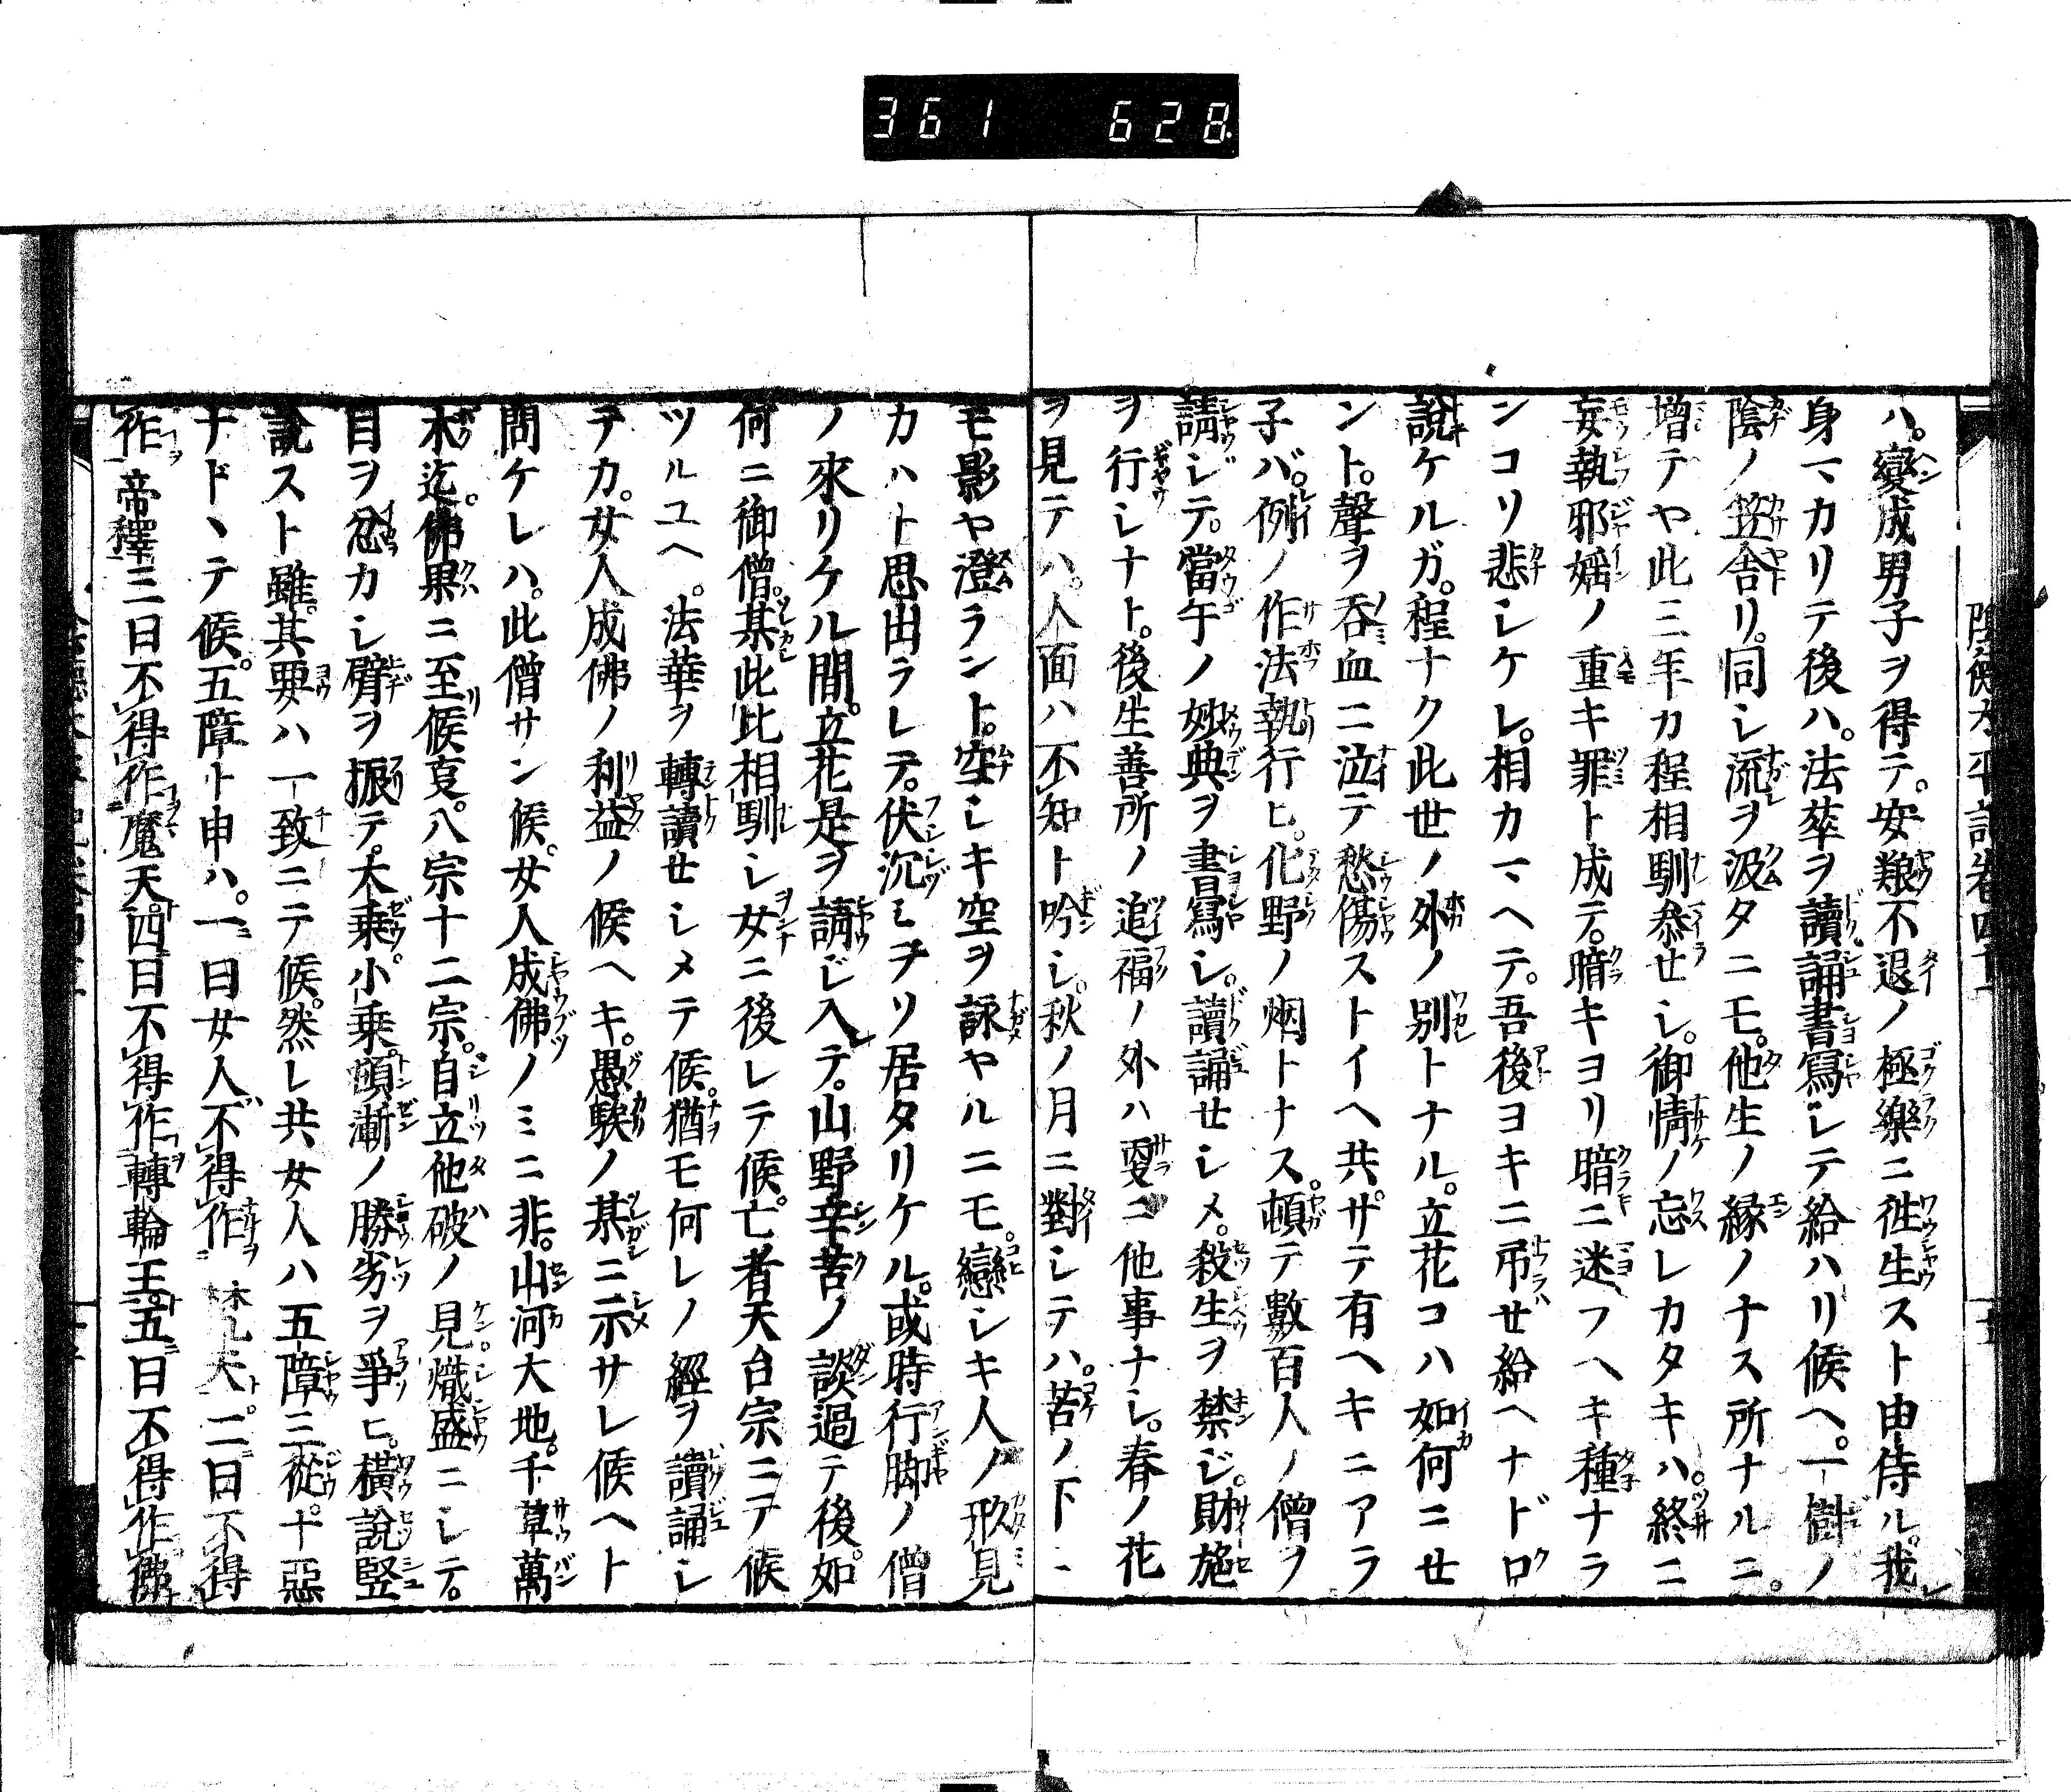 361 628
ハ。變成男子ヲ得テ。安養不退ノ極樂ニ徃生スト申侍ル。我
身マカリテ後ハ。法華ヲ讀誦書寫シテ給ハリ候ヘ。一樹ノ
陰ノ笠舎リ。同シ流ヲ汲タニモ。他生ノ縁ノナス所ナルニ。
増テヤ此三年カ程相馴叅セシ。御情ノ忘レカタキハ。終ニ
妄執邪婬ノ重キ罪ト成テ。暗キヨリ暗ニ迷フヘキ種ナラ
ンコソ悲シケレ。相カマヘテ。吾後ヨキニ吊ゼ給ヘナドロ
說ケルガ。程ナク此世ノ外ノ別トナル。立花コハ如何ニセ
ント。聲ヲ呑血ニ泣テ愁傷ストイヘ共。サテ有ヘキニアラ
子バ。例ノ作法執行ヒ。化野ノ烟トナス。頓テ數百人ノ僧ヲ
請ジテ。當午ノ妙典ヲ書寫シ。讀誦せシメ。殺生ヲ禁ジ。財施
ヲ行シナト。後生善所ノ追福ノ外ハ更ニ他事ナシ。春ノ花
ヲ見テハ。人面ハ不知ト吟シ。秋ノ月ニ對シテハ。苔ノ下ニ
モ影ヤ澄ラント。空シキ空ヲ詠ヤルニモ。戀シキ人ノ形見
カハト思出ラレテ。伏沉ミヲソ居タリケル。或時行脚ノ僧
ノ來リケル間。立花是ヲ請ジ入テ。山野辛苦ノ談過テ後。如
何ニ御僧。某此比相馴シ女ニ後レテ候。亡者天台宗ニテ候
ツルユヘ。法華ヲ轉讀せシメテ候。猶モ何レノ經ヲ讀誦シ
テカ。女人成佛ノ利益ノ候ヘキ。愚騃ノ某ニ示サレ候ヘト
問ケレハ。此僧サン候。女人成佛ノミニ非。山河大地。千草萬
木迄。佛果ニ至候叓。八宗十二宗。自立他破ノ見熾盛ニシテ。
目ヲ忿カシ臂ヲ振テ。大乗小乗。頓漸ノ勝劣ヲ爭ヒ。橫說竪
說スト雖。其要ハ一致ニテ候。然レ共女人ハ五障三從。十惡
ナドヽテ候。五障ト申ハ。一曰女人不得作梵天。二曰不得
作帝釋三曰不得作魔天。四曰不得作轉輪王。五曰不得作佛